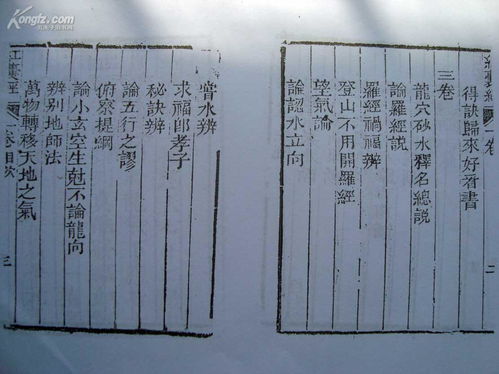 得訣歸來好看書
三卷
龍穴砂水釋名總說
論羅經說
羅經禍福辨
登山不用開羅經
望氣論
論認水立向
骨水辨
求福郎孝子
秘訣辨
論五行之謬
俯察提綱
論小玄空生尅不論龍向
辨別地師法
萬物轉移天地之氣
三
Kongfz.com